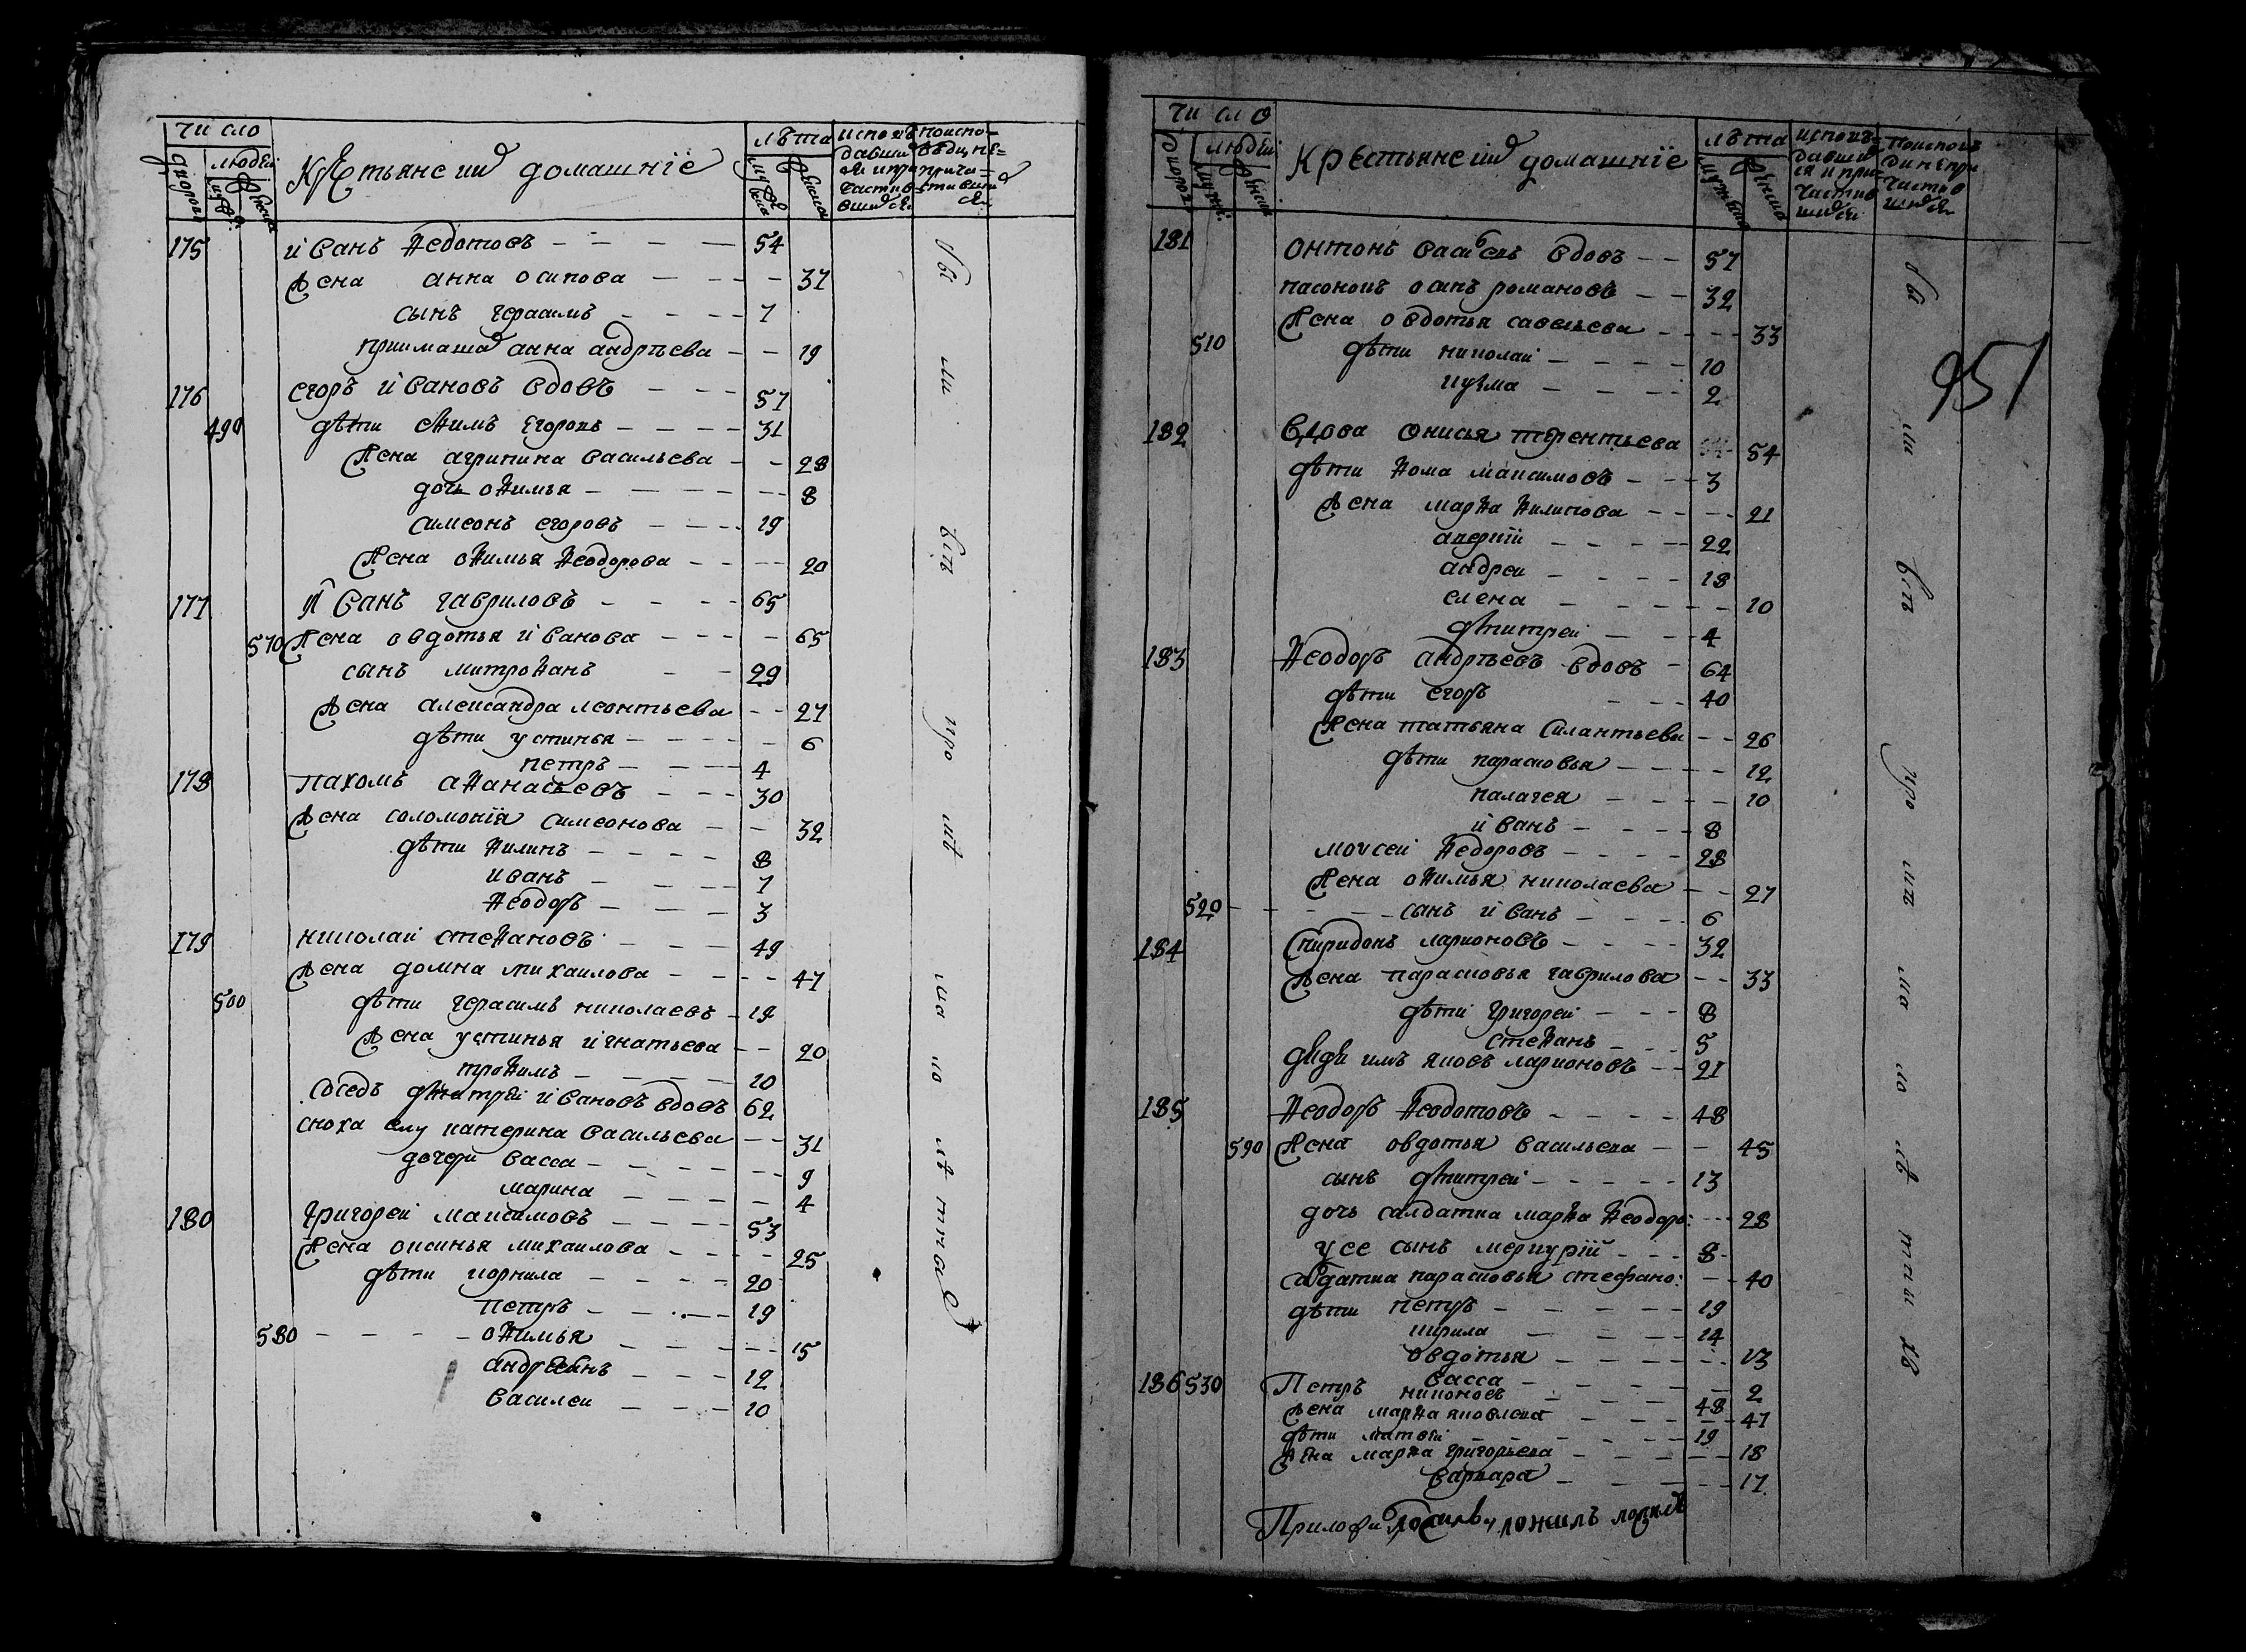 число
людей
Крестьянские домашнiе
лѣта
175 иванъ Ѳедотовъ 54
жена анна осипова 37
сынъ герасимъ 7
приимашъ анна андрѣева 19
176 егоръ ивановъ вдовъ 57
490 дѣти еѲимъ егоровъ 31
жена агрипина васильева 28
дочь оѲимья 8
симеонъ егоровъ 19
жена оѲимья Ѳеодорова 20
177 иванъ гавриловъ 65
570 жена овдотья иванова 65
сынъ митроѲанъ 29
жена александра леонтьева 27
дѣти устинья 6
петръ 4
178 пахомъ аѲанасьевъ 30
жена соломонïя симеонова 32
дѣти Ѳилипъ 8
иванъ 7
Ѳеодоръ 3
179 николаи стеѲановъ 49
жена домна михаилова 47
500 дѣти герасимъ николаевъ 19
жена устинья игнатьева 20
троѲимъ 10
соседъ дмитреи ивановъ вдовъ 62
сноха ему катерина васильева 31
дочери васса 9
марина 4
180 григореи максимовъ 53
жена оксинья михаилова 25
дѣти корнила 20
петръ 19
580 оѲимья 15
андреянъ 12
василеи 10
число
людей
Крестьянские домашнïе
лѣта
951
181 онтонъ васильевъ вдовъ 57
пасонокъ осипъ романовъ 32
жена овдотья савельева 33
510 дѣти николаи 10
кузма 2
182 вдова онисья терентьева 54
дѣти Ѳома максимовъ 3
жена марѲа Ѳилипова 21
аверкïи 22
андреи 18
елена 10
дмитреи 4
183 Ѳеодоръ андрѣевъ вдовъ 64
дѣти егоръ 40
жена татьяна силантьева 26
дѣти парасковья 12
палагея 10
иванъ 8
моисеи Ѳедоровъ 28
жена оѲимья николаева 27
520 сынъ иванъ 6
184 спиридонъ ларионовъ 32
жена парасковья гаврилова 33
дѣти григореи 8
стеѲанъ 5
дядя имъ яковъ ларионовъ 21
185 Ѳеодоръ Ѳеодотовъ 48
590 жена овдотья васильева 45
сынъ дмитреи 13
дочь салдатка марѲа Ѳеодоро: 28
у ее сынъ меркурïй 8
салдатка парасковья стефано: 40
дѣти петръ 19
кирила 14
овдотья 13
васса 2
186 530 Петръ никоновъ 48
жена марѲа яковлева 47
дѣти матвеи 19
жена марѲа григорьева 18
варвара 17